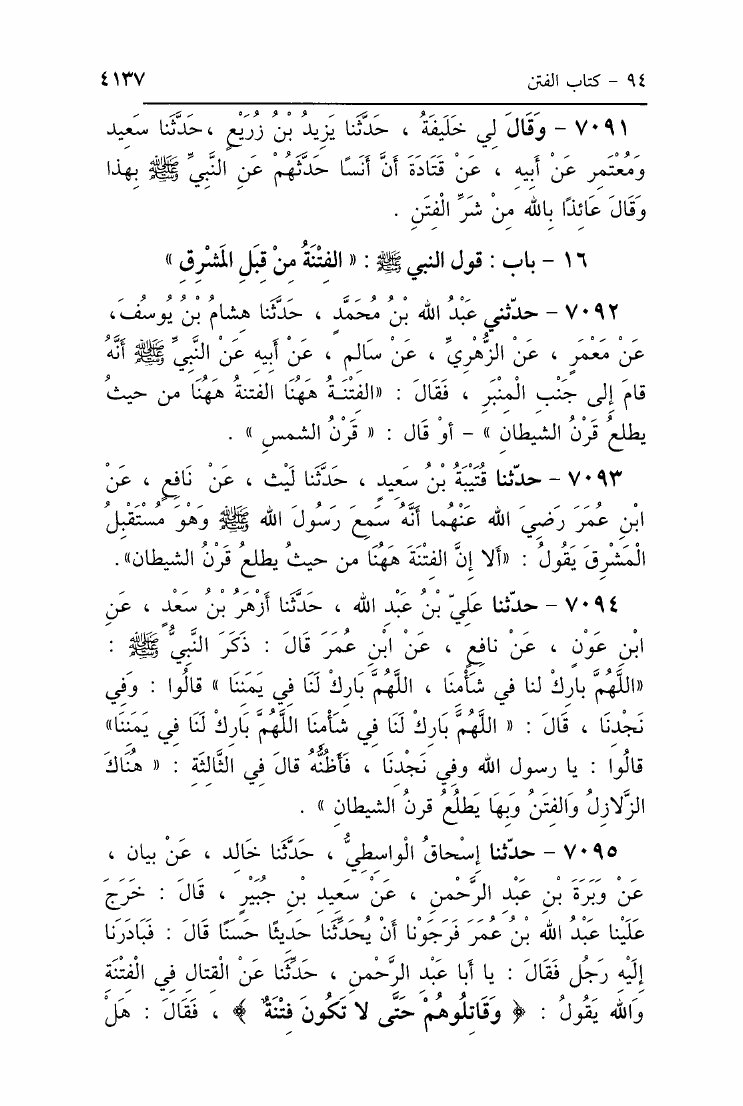 ٩٤ - كتاب الفتن ٤١٣٧
٧٠٩١ - وَقَالَ لِي خَلَيفَةُ ، حَدَّثَنا يَزِيدُ بْنُ زُرَيْعٍ ، حَدَّثَنا سَعيد
وَمُعْتَمِر عَنْ أبِيهِ ، عَنْ قَتَادَةَ أنَّ أنَسًا حَدَّثَهُمْ عَنِ النَّبِيِّ ﷺ بِهذا
وَقَالَ عَائذًا بِالله مِنْ شَرِّ الْفِتَنِ .
١٦ - باب : قول النبي ﷺ : « الفِتْنَةُ مِنْ قِبَلِ المَشْرِقِ »
٧٠٩٢ - حدّثني عَبْدُ الله بْنُ مُحَمَّدٍ ، حَدَّثَنا هِشامُ بْنُ يُوسُفَ،
عَنْ مَعْمَرٍ ، عَنِ الزُّهْرِيِّ ، عَنْ سَالِمٍ ، عَنْ أبِيهِ عَنْ النَّبِيِّ ﷺ أنَّهُ
قامَ إلى جَنْبِ الْمِنْبَرِ ، فَقَالَ : «الفِتْنَـةُ هٰهُنَا الفتنةُ هٰهُنَا من حيثُ
يطلعُ قَرْنُ الشيطانِ » - أوْ قال : « قَرْنُ الشمسِ » .
٧٠٩٣ - حدّثنا قُتَيْبَةُ بْنُ سَعِيدٍ ، حَدَّثَنا لَيْث ، عَنْ نَافِعٍ ، عَنْ
ابْنِ عُمَرَ رَضِيَ الله عَنْهُما أنَّهُ سَمِعَ رَسُولَ الله ﷺ وَهْوَ مُسْتَقْبِلُ
الْمَشْرِقَ يَقُولُ : «ألا إنَّ الفتْنَةَ هٰهُنَا من حيثُ يطلعُ قَرْنُ الشيطان».
٧٠٩٤ - حدّثنا عَلِيّ بْنُ عَبْدِ الله ، حَدَّثَنا أزْهَرُ بْنُ سَعْدٍ ، عَنِ
ابْنِ عَوْنٍ ، عَنْ نافِعٍ ، عَنْ ابْنِ عُمَرَ قَالَ : ذَكَرَ النَّبِيُّ ﷺ :
«اللَّهُمَّ بارِكْ لنا في شَأْمِنَا ، اللَّهُمَّ بَارِكْ لَنَا فِي يَمَنِنَا » قالُوا : وَفِي
نَجْدِنَا ، قَالَ : « اللَّهُمَّ بَارِكْ لَنَا فِي شَأْمِنَا اللَّهُمَّ بَارِكْ لَنَا فِي يَمَنِنَا»
قالُوا : يا رسول الله وفِي نَجْدِنَا ، فَأظُنُّهُ قالَ فِي الثَّالثَةِ : « هُنَاكَ
الزَّلازِلُ وَالفِتَنُ وَبِهَا يَطلُعُ قرنُ الشيطانِ » .
٧٠٩٥ - حدّثنا إسْحاقُ الْواسِطِيُّ ، حَدَّثَنا خَالِد ، عَنْ بيان ،
عَنْ وَبَرَةَ بْنِ عَبْدِ الرَّحْمنِ ، عَنْ سَعيدِ بْنِ جُبَيْرٍ ، قَالَ : خَرَجَ
عَلَيْنا عَبْدُ الله بْنُ عُمَرَ فَرَجَوْنا أنْ يُحَدِّثَنا حَديثًا حَسَنًا قَالَ : فَبَادَرَنا
إلَيْهِ رَجُل فَقَالَ : يا أبا عَبْدِ الرَّحْمنِ ، حَدِّثْنا عَنْ الْقِتالِ فِي الْفِتْنَةِ
وَالله يَقُولُ : ﴿ وَقَاتِلُوهُمْ حَتَّى لا تَكُونَ فِتْنَةٌ ﴾ ، فَقَالَ : هَلْ